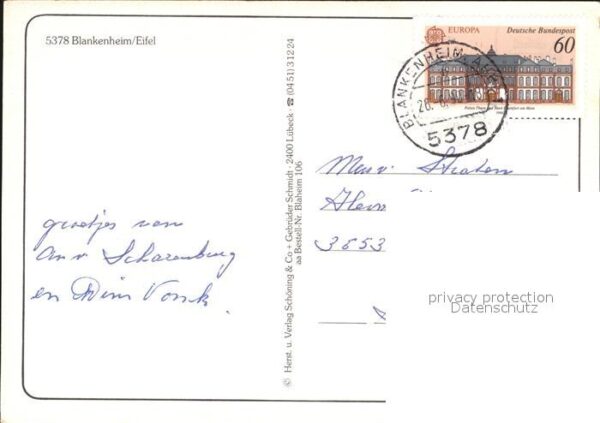 5378 Blankenheim/Eifel
EUROPA Deutsche Bundespost
60
BLANKENHEIM, AHR
5378
© Herst. u. Verlag Schöning & Co + Gebrüder Schmidt · 2400 Lübeck · ☎ (04 51) 3 12 24
aa Bestell-Nr. Blaheim 106
groetjes van
An v Scharenburg
en Wim Vonk.
Mevr. Straten
3653
privacy protection
Datenschutz